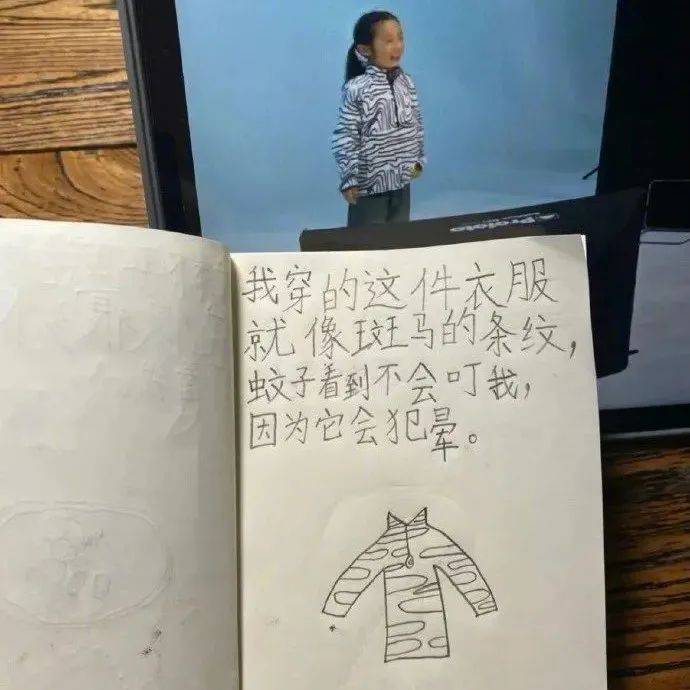 Profoto
我穿的这件衣服
就像斑马的条纹，
蚊子看到不会叮我，
因为它会犯晕。